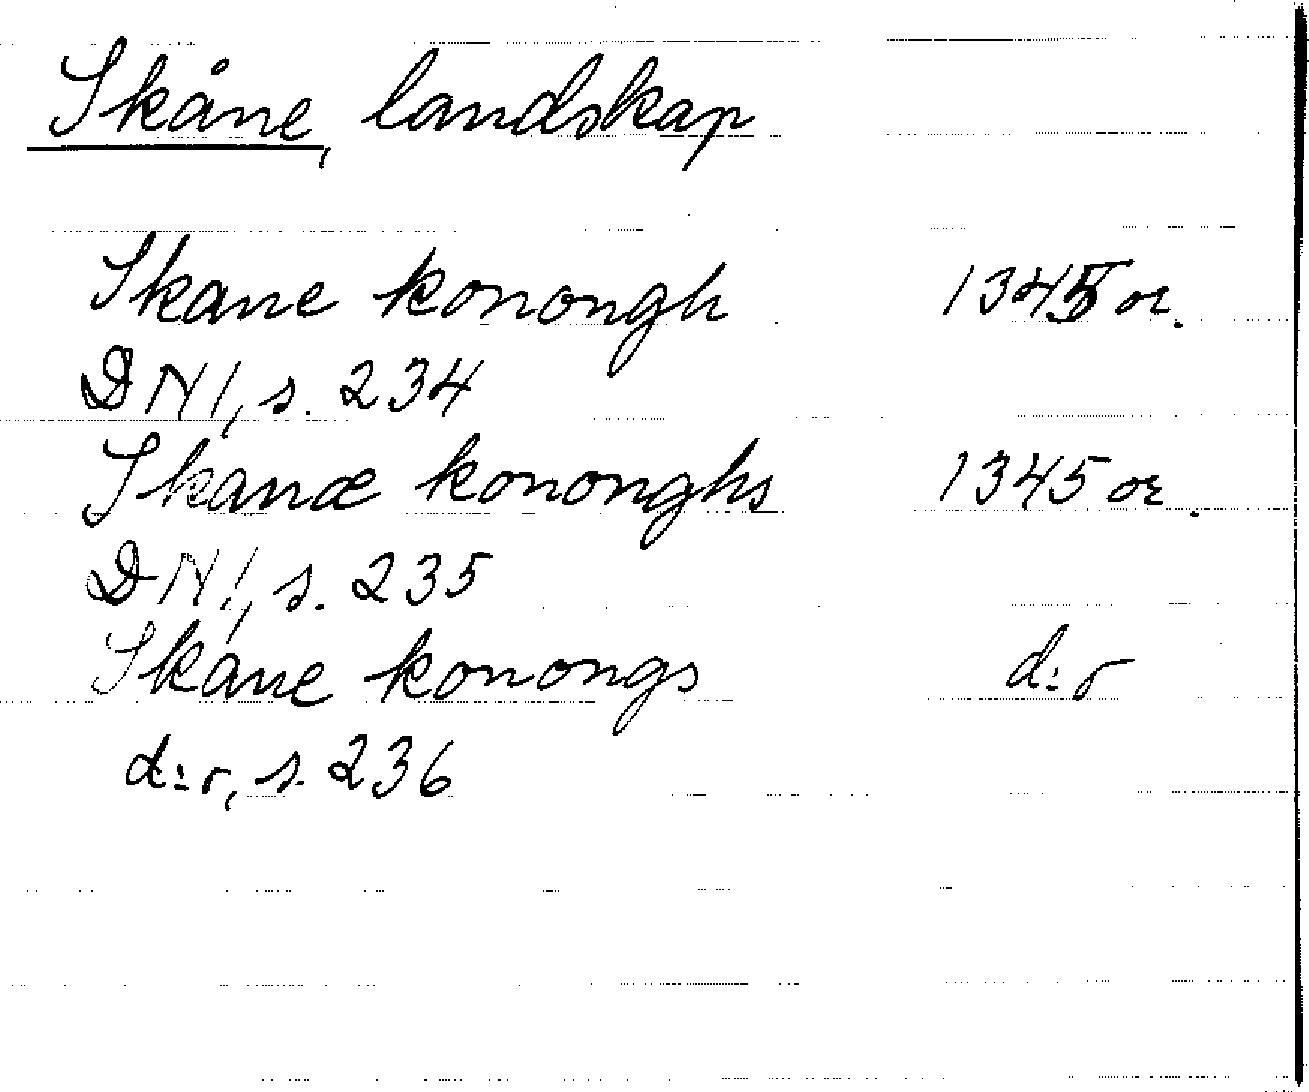 Skåne, landskap
Skane konongh 1345 or.
DN 1, s. 234
Skanæ kononghs 1345 or.
DN 1, s. 235
Skane konongs d:o
d:o, s. 236